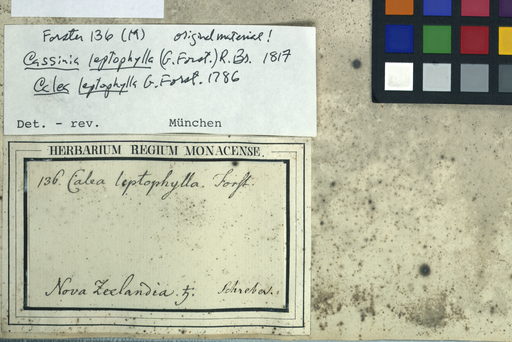 Forster 136 (M) original material!
Cassinia leptophylla (G. Forst.) R. Br. 1817
Calea leptophylla G. Forst. 1786
Det. - rev. München
HERBARIUM REGIUM MONACENSE.
136. Calea leptophylla. Forst.
Nova Zeelandia. ♄. Schreber.